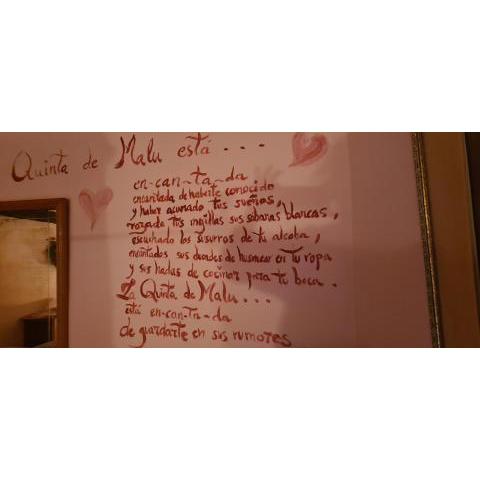 Quinta de Malu está ...
en-can-ta-da.
encantada de haberte conocido
y haber acunado tus sueños,
rozado tus mejillas sus sábanas blancas,
escuchado los susurros de tu alcoba,
encantados sus duendes de husmear en tu ropa
y sus hadas de cocinar para tu boca.
La Quinta de Malu...
está en-can-ta-da
de guardarte en sus rumores